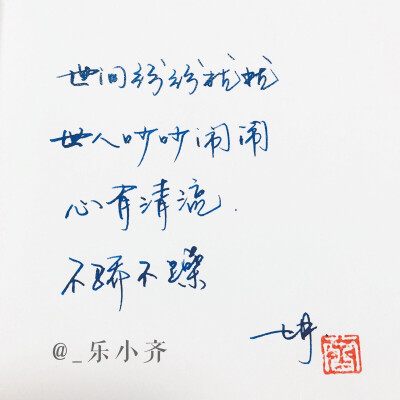 世间纷纷扰扰
世人吵吵闹闹
心有清流.
不骄不躁
@_乐小齐